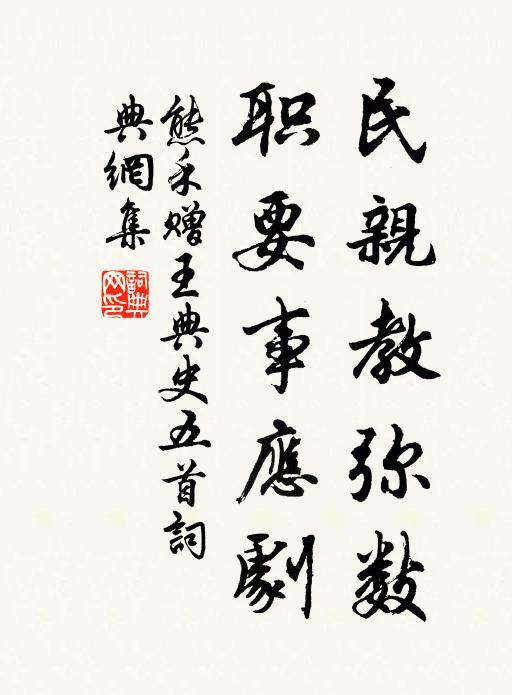 民親教弥数
职要事應劇
熊禾赠王典史五首詞
典網集
詞典网印